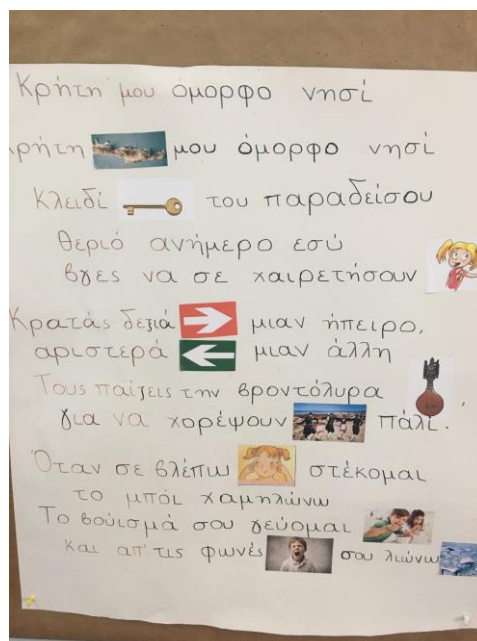 Κρήτη μου όμορφο νησί
ρήτη μου όμορφο νησί
Κλειδί του παραδείσου
Θεριό ανήμερο εσύ
βγες να σε χαιρετήσουν
Κρατάς δεξιά μιαν ήπειρο,
αριστερά μιαν άλλη
Τους παίζεις την βροντόλυρα
για να χορέψουν πάλι.
Όταν σε βλέπω στέκομαι
το μπόι χαμηλώνω
Το βούισμά σου γεύομαι
και απ' τις φωνές σου λιώνω